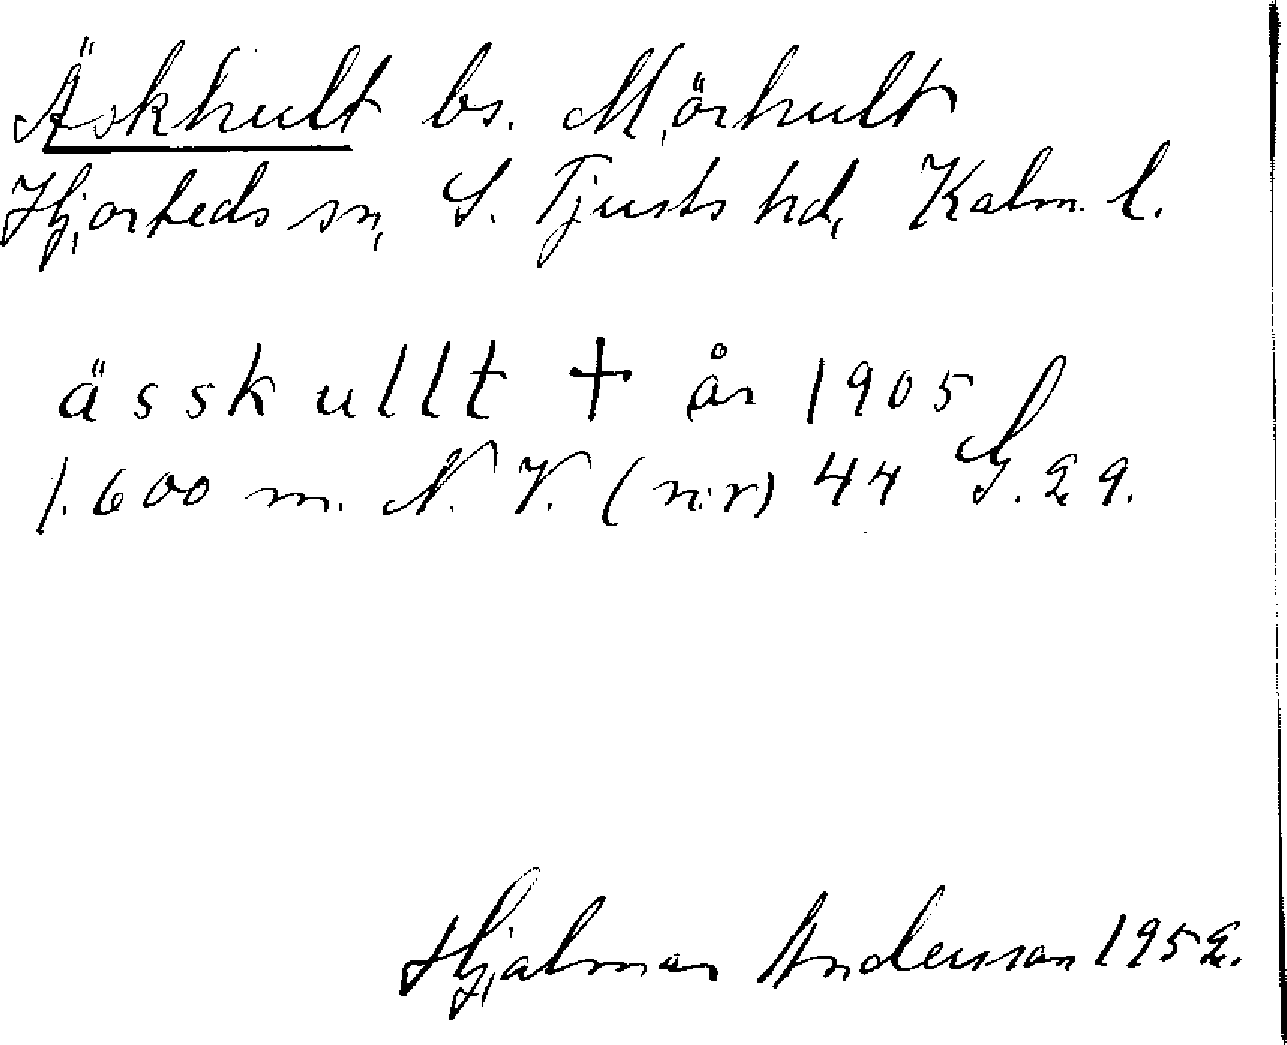 Äskhult bs. Mörhult
Hjorteds sn, S. Tjusts hd, Kalm. l.
ässkullt + år 1905
1.600 m. N. V. (n:r) 44 G. 29.
Hjalmar Andersson 1952.